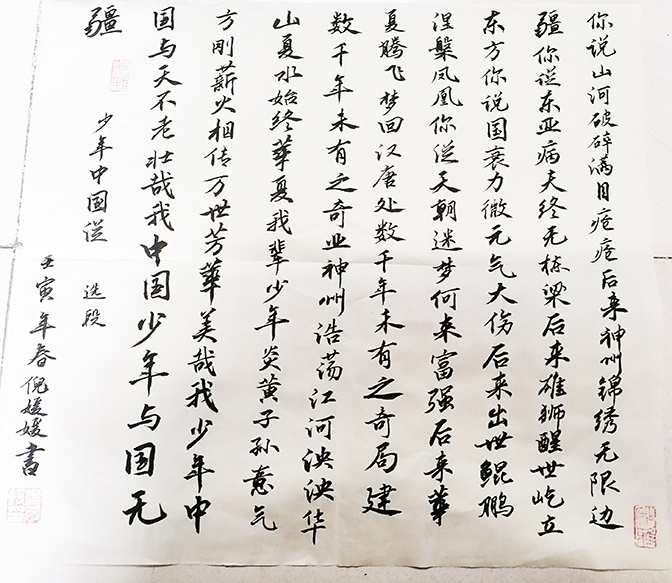 你说山河破碎满目疮疮后来神州锦绣无限边
疆你说东亚病夫终无栋梁后来雄狮醒世屹立
东方你说国衰力微元气大伤后来出世鲲鹏
涅槃凤凰你说天朝迷梦何来富强后来华
夏腾飞梦回汉唐处数千年未有之奇局建
数千年未有之奇业神州浩荡江河泱泱华
山夏水始终华夏我辈少年炎黄子孙意气
方刚薪火相传万世芳华美哉我少年中
国与天不老壮哉我中国少年与国无
疆
少年中国说 选段
壬寅年春倪媛媛书